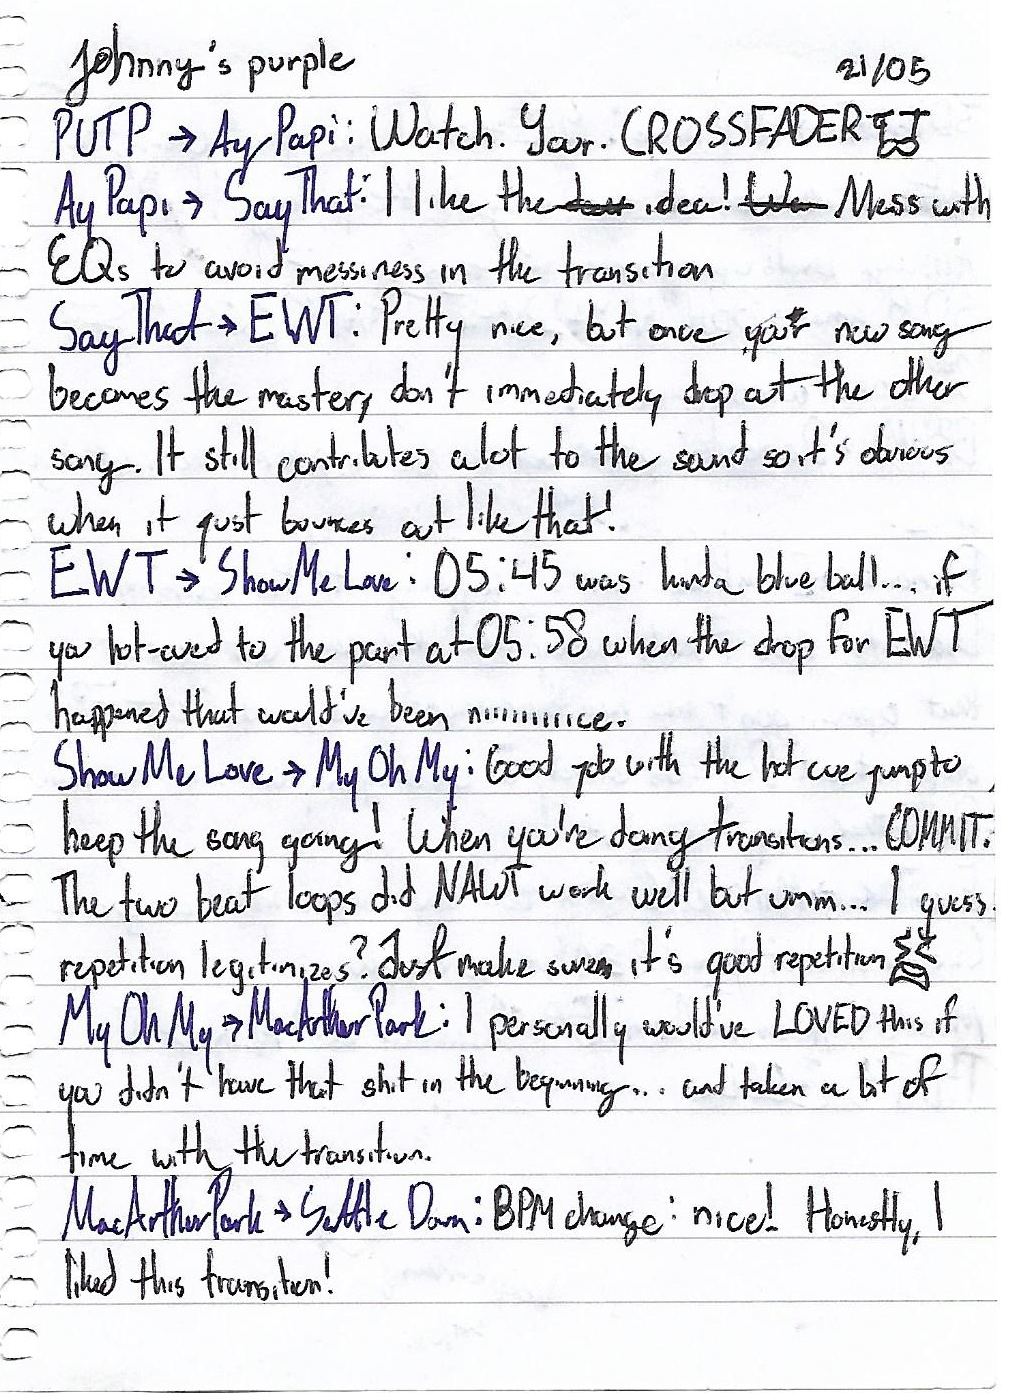 Johnny's purple 21/05
PUTP → Ay Papi: Watch. Your. CROSSFADER
Ay Papi → Say That: I like the idea! Mess with
EQs to avoid messiness in the transition
Say That → EWT: Pretty nice, but once your new song
becomes the master, don't immediately drop out the other
song. It still contributes alot to the sound so it's obvious
when it just bounces out like that!
EWT → Show Me Love: 05:45 was kinda blue ball... if
you hot-cued to the part at 05:58 when the drop for EWT
happened that would've been niiiiiiiiiice.
Show Me Love → My Oh My: Good job with the hot cue jump to
keep the song going! When you're doing transitions... COMMIT.
The two beat loops did NAWT work well but umm... I guess
repetition legitimizes? Just make sure it's good repetition
My Oh My → MacArthur Park: I personally would've LOVED this if
you didn't have that shit in the beginning... and taken a bit of
time with the transition.
MacArthur Park → Settle Down: BPM change: nice! Honestly, I
liked this transition!